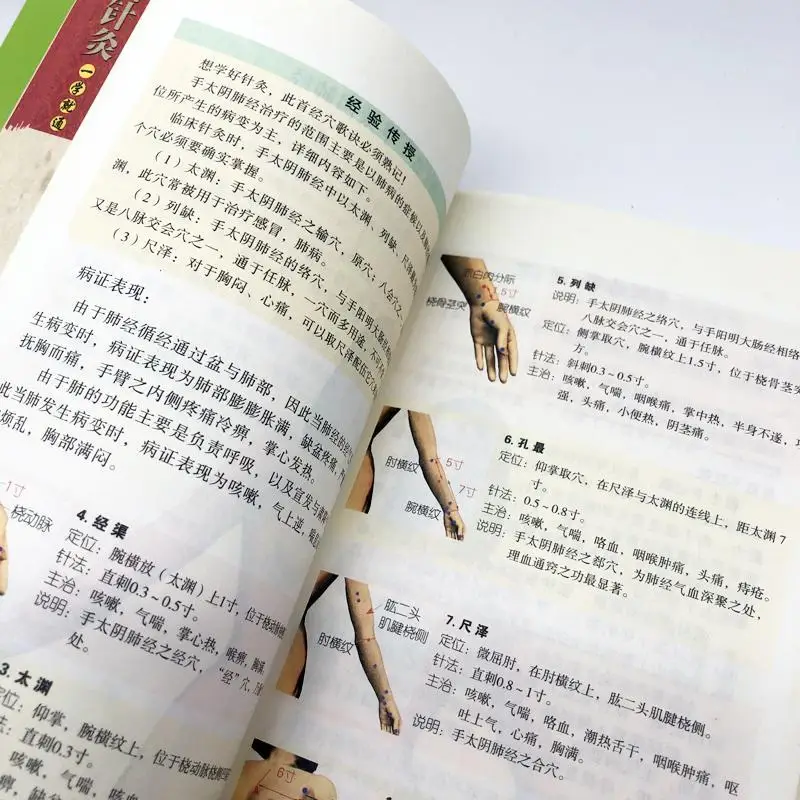 针灸
一学就通
经验传授
想学好针灸，此首经穴歌诀必须熟记！
手太阴肺经治疗的范围主要是以肺病的症候以及
位所产生的病变为主，详细内容如下。
临床针灸时，手太阴肺经中以太渊、列缺、尺泽
个穴必须要确实掌握。
（1）太渊：手太阴肺经之输穴，原穴，八会穴之
渊，此穴常被用于治疗感冒，肺病。
（2）列缺：手太阴肺经的络穴，与手阳明大肠经
又是八脉交会穴之一，通于任脉，一穴而多用途，不
（3）尺泽：对于胸闷、心痛，可以取尺泽配
病证表现：
由于肺经循经通过盆与肺部，因此当肺经
生病变时，病证表现为肺部膨膨胀满，缺盆疼痛，
抚胸而痛，手臂之内侧疼痛冷痹，掌心发热。
由于肺的功能主要是负责呼吸，以及宣发与肃
此当肺发生病变时，病证表现为咳嗽，气上逆，
烦乱，胸部满闷。
1寸
桡动脉
4. 经渠
定位：腕横放（太渊）上1寸，位于桡动脉
针法：直刺0.3～0.5寸。
主治：咳嗽，气喘，掌心热，喉痹，胸
说明：手太阴肺经之经穴，“经”穴，
处。
3. 太渊
定位：仰掌，腕横纹上，位于桡动脉桡侧
针法：直刺0.3寸。
咳嗽，气喘，咳血，
痹，缺盆
赤白肉分际
1.5寸
桡骨茎突
腕横纹
5. 列缺
说明：手太阴肺经之络穴，与手阳明大肠经相络
八脉交会穴之一，通于任脉。
定位：侧掌取穴，腕横纹上1.5寸，位于桡骨茎突
针法：斜刺0.3～0.5寸。
主治：咳嗽，气喘，咽喉痛，掌中热，半身不遂，
强，头痛，小便热，阴茎痛。
肘横纹
5寸
7寸
腕横纹
6. 孔最
定位：仰掌取穴，在尺泽与太渊的连线上，距太渊7
寸。
针法：0.5～0.8寸。
主治：咳嗽，气喘，咯血，咽喉肿痛，头痛，痔疮。
说明：手太阴肺经之郄穴，为肺经气血深聚之处，
理血通窍之功最显著。
肱二头
肌腱桡侧
肘横纹
7. 尺泽
定位：微屈肘，在肘横纹上，肱二头肌腱桡侧。
针法：直刺0.8～1寸。
主治：咳嗽，气喘，咯血，潮热舌干，咽喉肿痛，呕
吐上气，心痛，胸满。
说明：手太阴肺经之合穴。
6寸